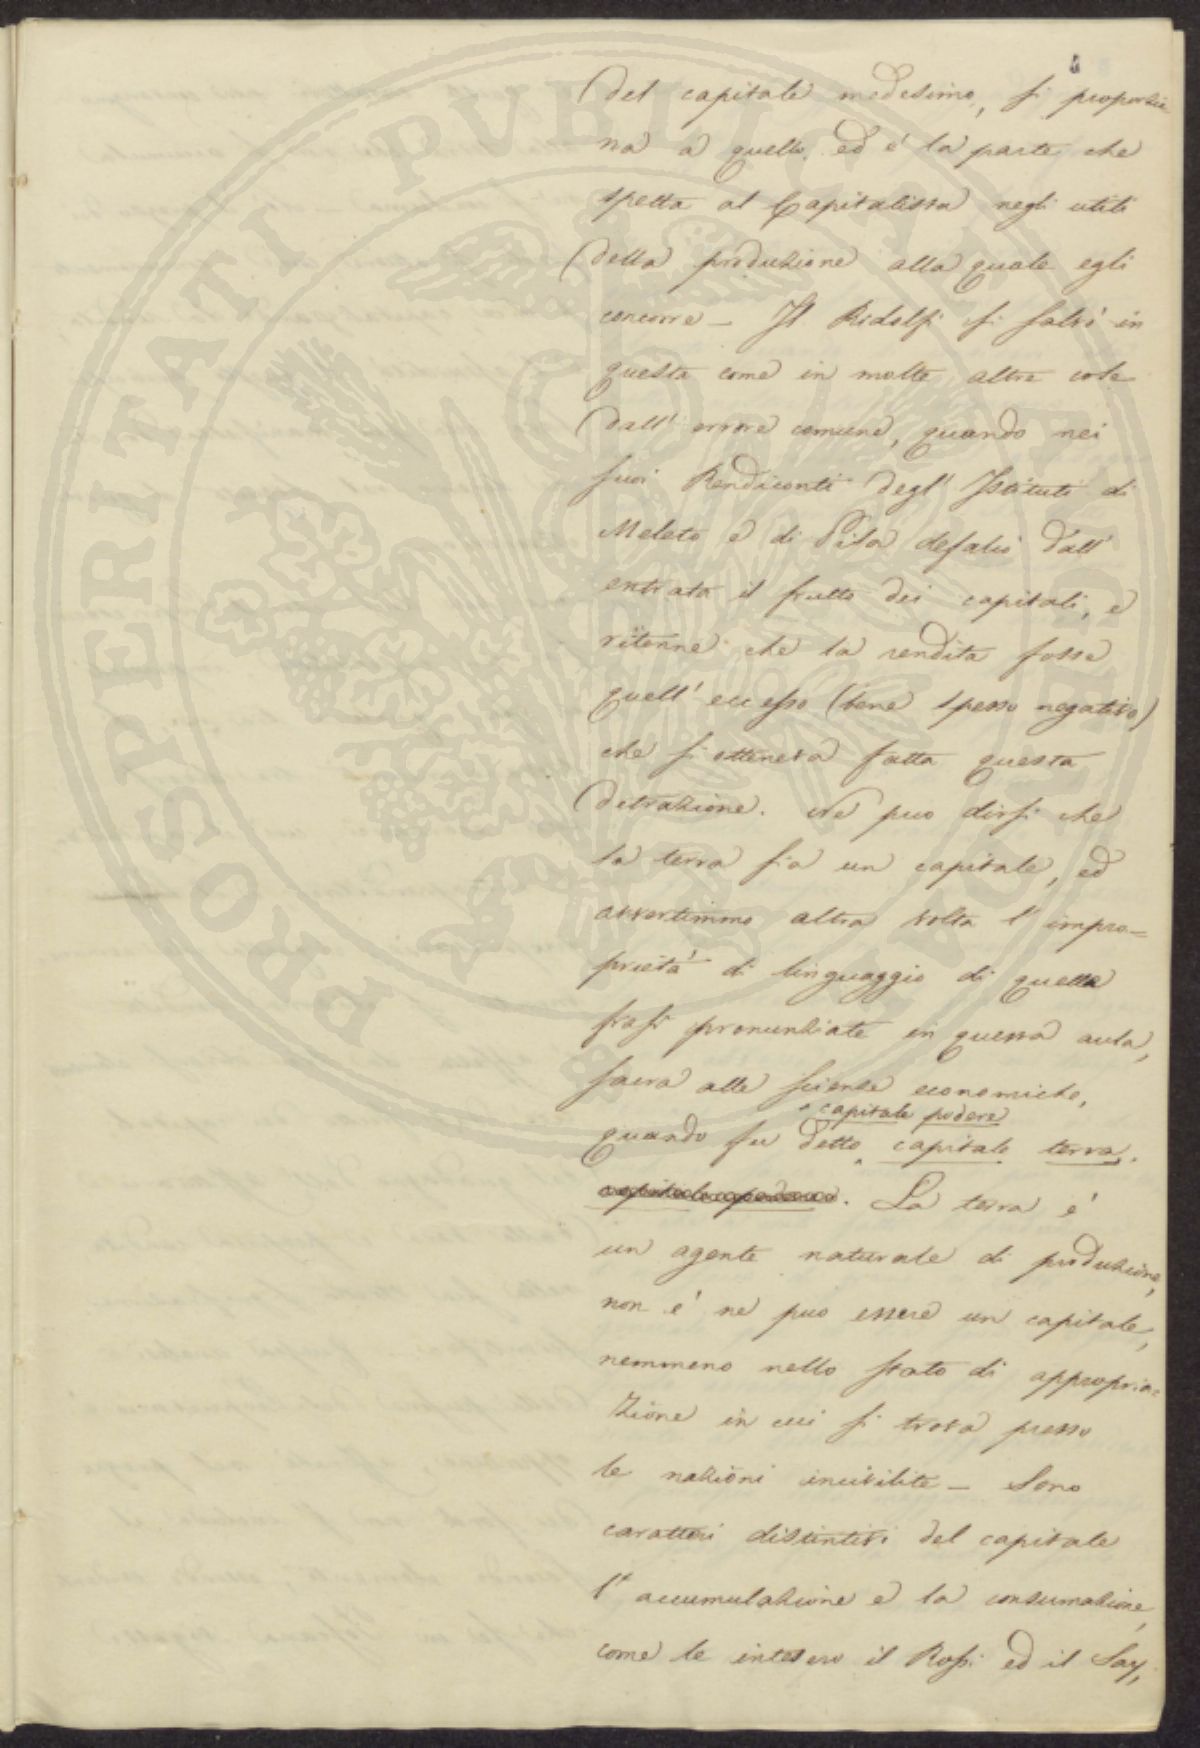 PROSPERITATI PUBLICAE AUGENDAE
del capitale medesimo, si proporzio
na a quello, ed è la parte che
spetta al Capitalista negli utili
della produzione alla quale egli
concorre — Il Ridolfi si salvò in
questa come in molte altre cose
dall' errore comune, quando nei
suoi Rendiconti degl' Istituti di
Meleto e di Pisa defalcò dall'
entrata il frutto dei capitali, e
ritenne che la rendita fosse
quell' eccesso (bene spesso negativo)
che si otteneva fatta questa
detrazione. Nè può dirsi che
la terra sia un capitale, ed
avvertimmo altra volta l' impro=
prietà di linguaggio di quelle
frasi pronunziate in questa aula,
sacra alle scienze economiche,
capitale podere
quando fu detto capitale terra.
capitale podere. La terra è
un agente naturale di produzione,
non è nè può essere un capitale,
nemmeno nello stato di appropria=
zione in cui si trova presso
le nazioni incivilite — Sono
caratteri distintivi del capitale
l' accumulazione e la consumazione,
come le intesero il Rossi ed il Say,